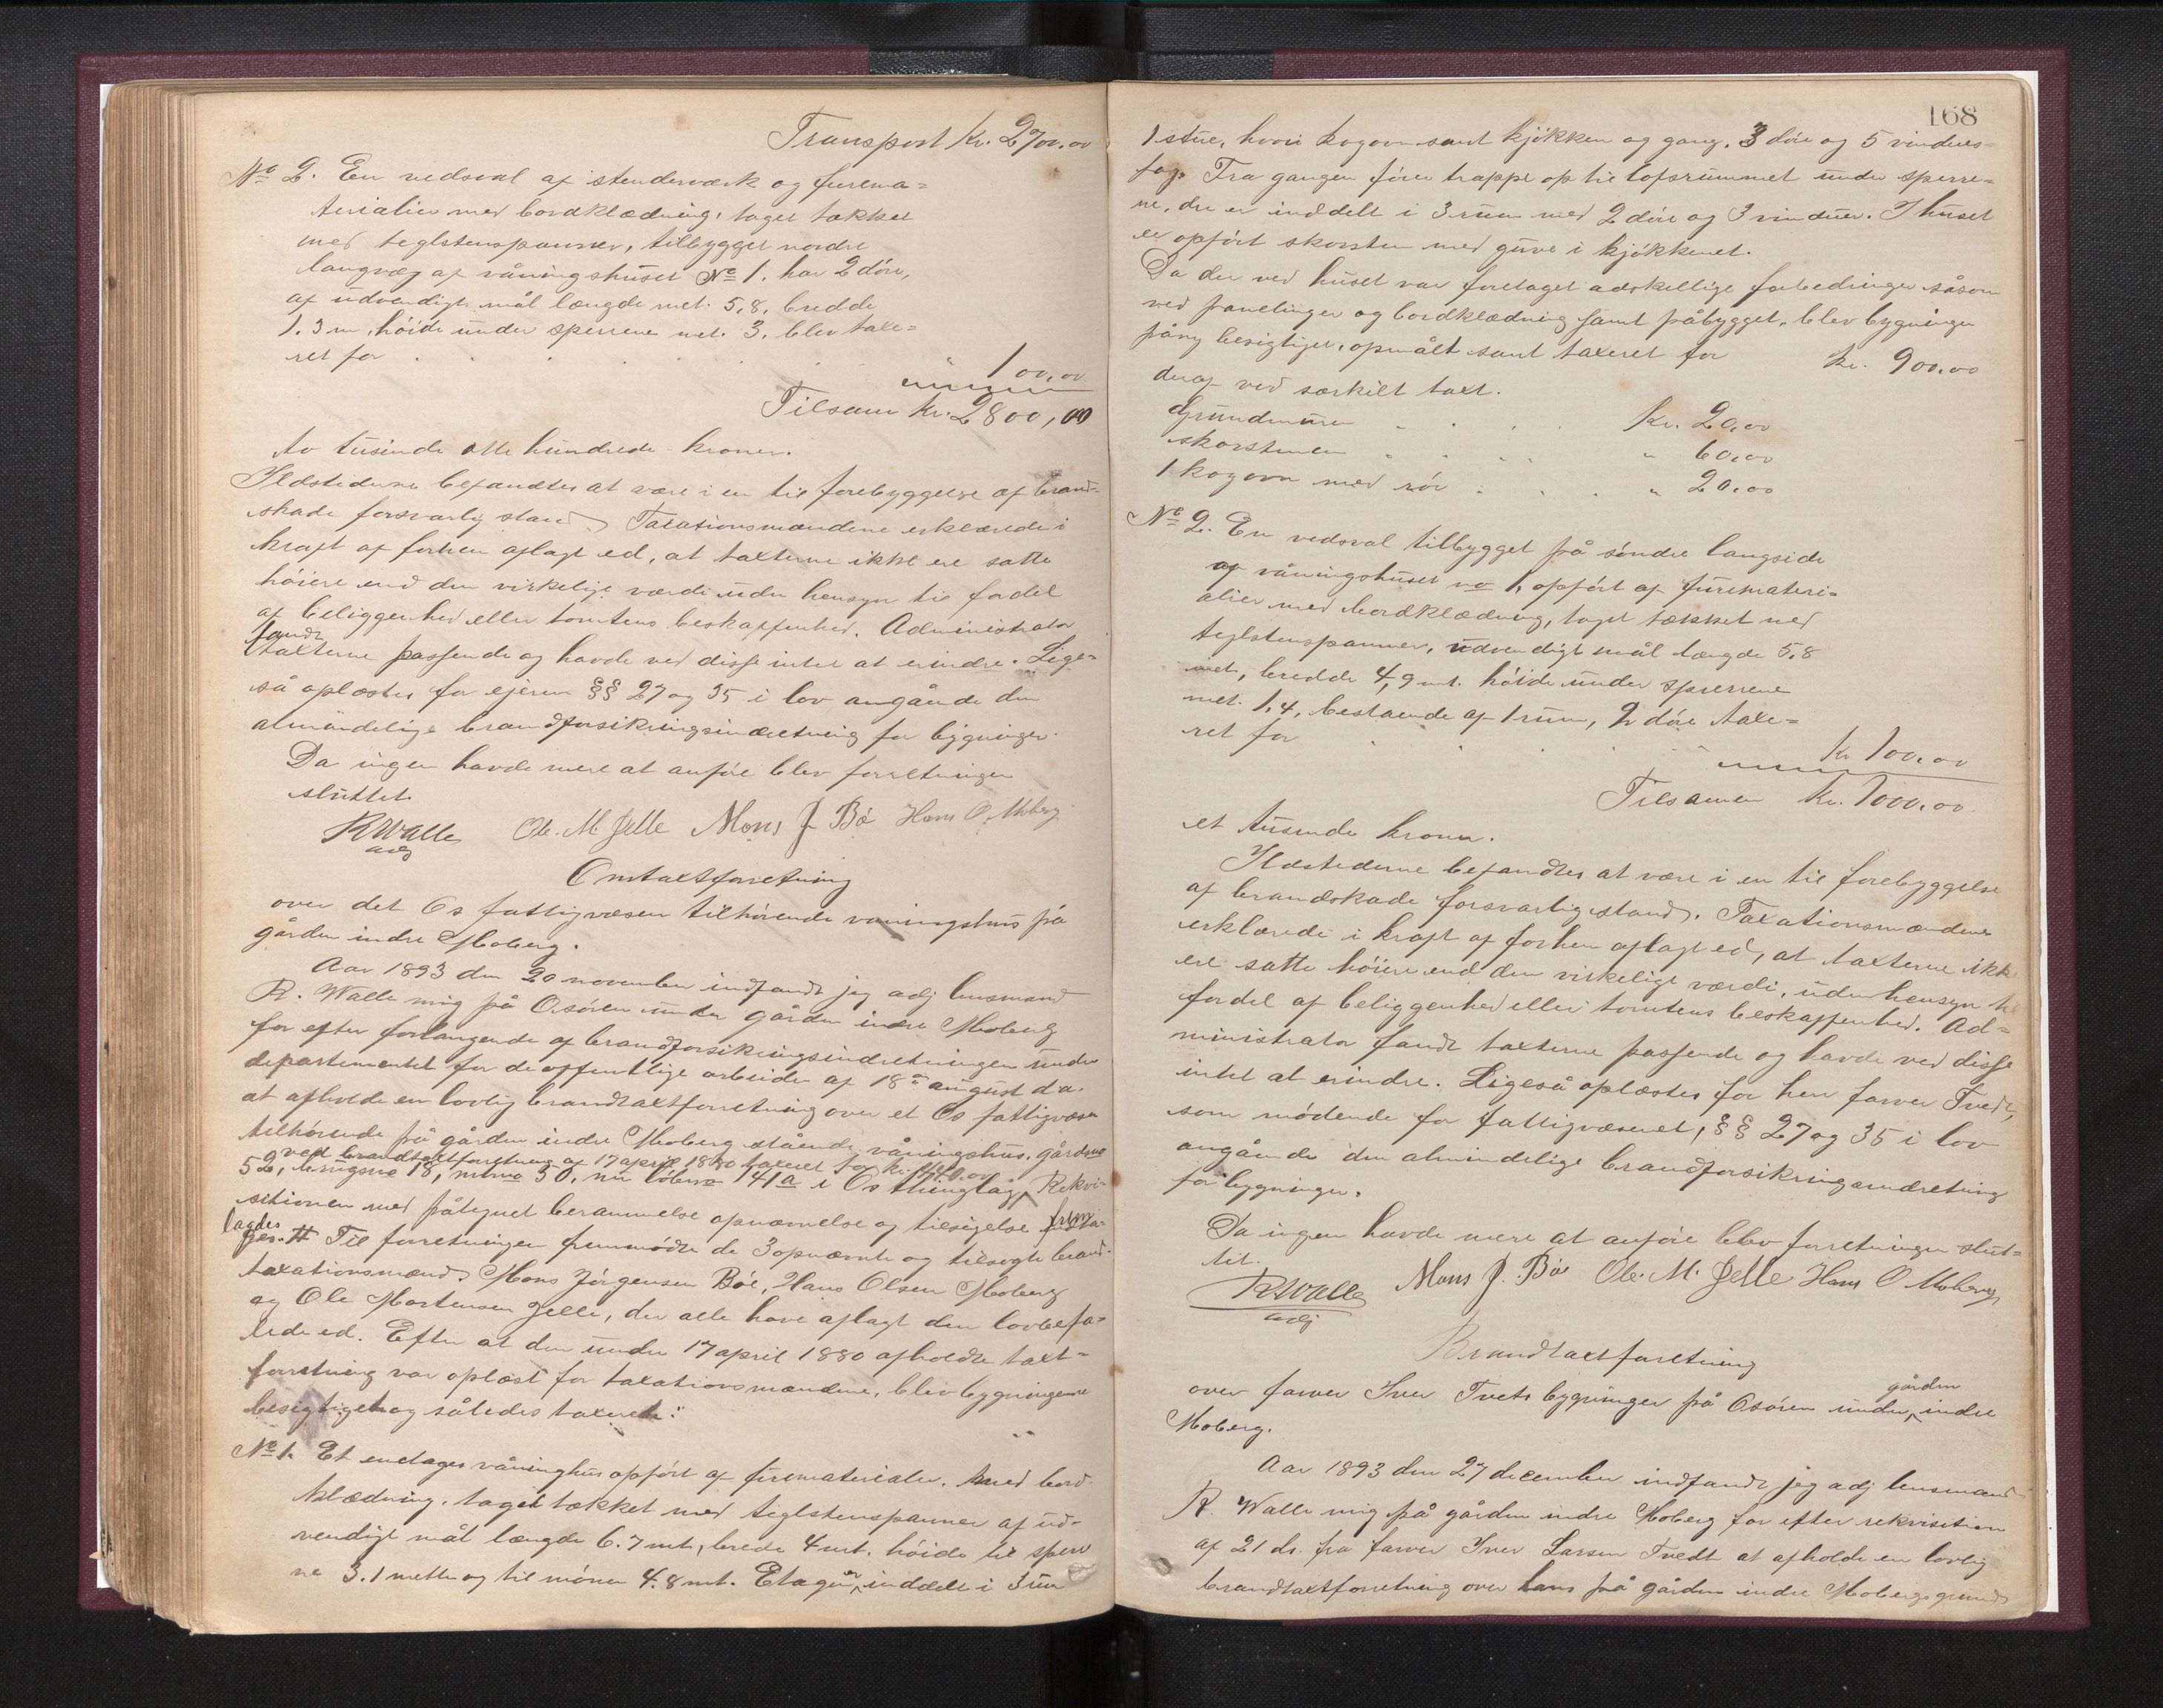 Transport Kr. 2700.00
No 2. En vedsval af stenderværk og furema=
terialier med bordklædning, taget tækket
med teglstenspanner, tilbygget nordre
langvæg af våningshuset No 1. har 2 døre,
af udvendigt mål længde met. 5,8, bredde
1.3 m, høide under sperrene met. 3. blev taxe=
ret for
100,00
Tilsam Kr. 2800,00
to tusinde otte hundrede kroner.
Ildstederne befandtes at være i en til forebyggelse af brand=
skade forsvarlig stand. Taxationsmændene erklærede i
kraft af forhen aflagt ed, at taxterne ikke ere satte
høiere end den virkelige værdi uden hensyn til fordel
af beliggenhed eller tomtens beskaffenhed. Administrator
fandt
taxterne passende og havde ved disse intet at erindre. Lige=
så oplæstes for ejeren §§ 27 og 35 i lov angående den
almindelige brandforsikringsindretning for bygninger.
Da ingen havde mere at anføre blev forretningen
sluttet.
R Walle Ole. M. Gjelle Mons J. Bø Hans O. Moberg
adj
Omtaxtforretning
over det Os fattigvæsen tilhørende vaningshus på
gården indre Moberg.
Aar 1893 den 20 november indfandt jeg adj lensmand
R. Walle mig på Osøren under gården indre Moberg
for efter forlangende af brandforsikringsindretningen under
departementet for de offentlige arbeider af 18de august d.a.
at afholde en lovlig brandtaxtforretning over et Os fattigvæsen
tilhørende på gården indre Moberg stående våningshus, gårdsno
ved brandtaxtforretning af 17 april 1880 taxeret for kr.
52, brugsno 18, mtrno 50, nu løbeno 141a i Os thinglag, Rekvi=
sitionen med påtegnet berammelse opnævnelse og tilsigelse frem=
lagdes. # Til forretningen fremmødte de 3 opnævnte og tilsagte brand=
taxationsmænd. Mons Jørgensen Bøe, Hans Olsen Moberg
og Ole Mortensen Gjelle, der alle have aflagt den lovbefa=
lede ed. Efter at den under 17 april 1880 afholdte taxt=
forretning var oplæst for taxationsmændene, blev bygningerne
besigtiget og således taxerede:
No 1. Et enetages våninghus opført af furematerialer, med bord
klædning, taget tækket med teglstenspanner af ud=
vendigt mål længde 6.7 mt, brede 4 mt. høide til sperre
ne 3.1 metter og til mønen 4.8 mt. Etagen er inddelt i 3 rum
168
1 stue, hvori kogovn samt kjøkken og gang, 3 døre og 5 vindues=
fag. Fra gangen fører trappe op til loftsrummet under sperre=
ne, der er inddelt i 3 rum med 2 døre og 3 vinduer. I huset
er opført skorsten med gruve i kjøkkenet.
Da der ved huset var foretaget adskellige forbedringer såsom
ved panelinger og bordklædning samt påbygget, blev bygningen
påny besigtiget, opmålt samt taxeret for kr. 900.00
deraf ved særkilt taxt.
Grundmuren Kr. 20.00
skorstenen " 60.00
1 kogovn med rør " 20.00
No 2. En vedsval tilbygget på søndre langside
af våningshuset no 1, opført af furemateri=
alier med bordklædning, taget tækket med
teglstenspanner, udvendigt mål længde 5.8
met, bredde 4,9 mt. høide under sperrene
met. 1,4, bestaende af 1 rum, 2 døre taxe=
ret for
Kr 100.00
Tilsamen Kr. 1000.00
et tusinde kroner.
Ildstederne befandtes at være i en til forebyggelse
af brandskade forsvarlig stand. Taxationsmændene
erklærede i kraft af forhen aflagt ed, at taxterne ikke
ere satte høiere end den virkelige værdi, uden hensyn til
fordel af beliggenhed eller tomtens beskaffenhed. Ad=
ministrator fandt taxterne passende og havde ved disse
intet at erindre. Ligeså oplæstes for hen farver Tvedt,
som mødende for fattigvæsenet, §§ 27 og 35 i lov
angående den almindelige brandforsikringsindretning
for bygninger.
Da ingen havde mere at anføre blev forretningen slut=
tet.
R Walle Mons J. Bøe Ole. M. Gjelle Hans O Moberg
adj
Brandtaxtforretning
over farver Iver Tvets bygninger på Osøren under gården indre
Moberg.
Aar 1893 den 27 december indfandt jeg adj lensmand
R. Walle mig på gården indre Moberg for efter rekvisition
af 21 ds. fra farver Iver Larsen Tvedt at afholde en lovlig
brandtaxtforretning over hans på gården indre Mobergs grund